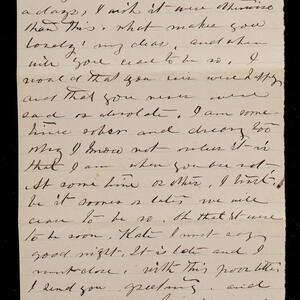 adays, I wish it were otherwise
than this. what makes you
lonely my dear, and when
will you cease to be so. I
would that you were happy
and that you never were
sad or desolate. I am some-
times sober and dreary too
why I know not unless it is
that I am when you are not.
At some time or other, I trust
be it sooner or later we will
cease to be so. Oh that it were
to be soon. Kate I must say
good night. It is late and I
must close. with this poor letter
I send you greeting, and